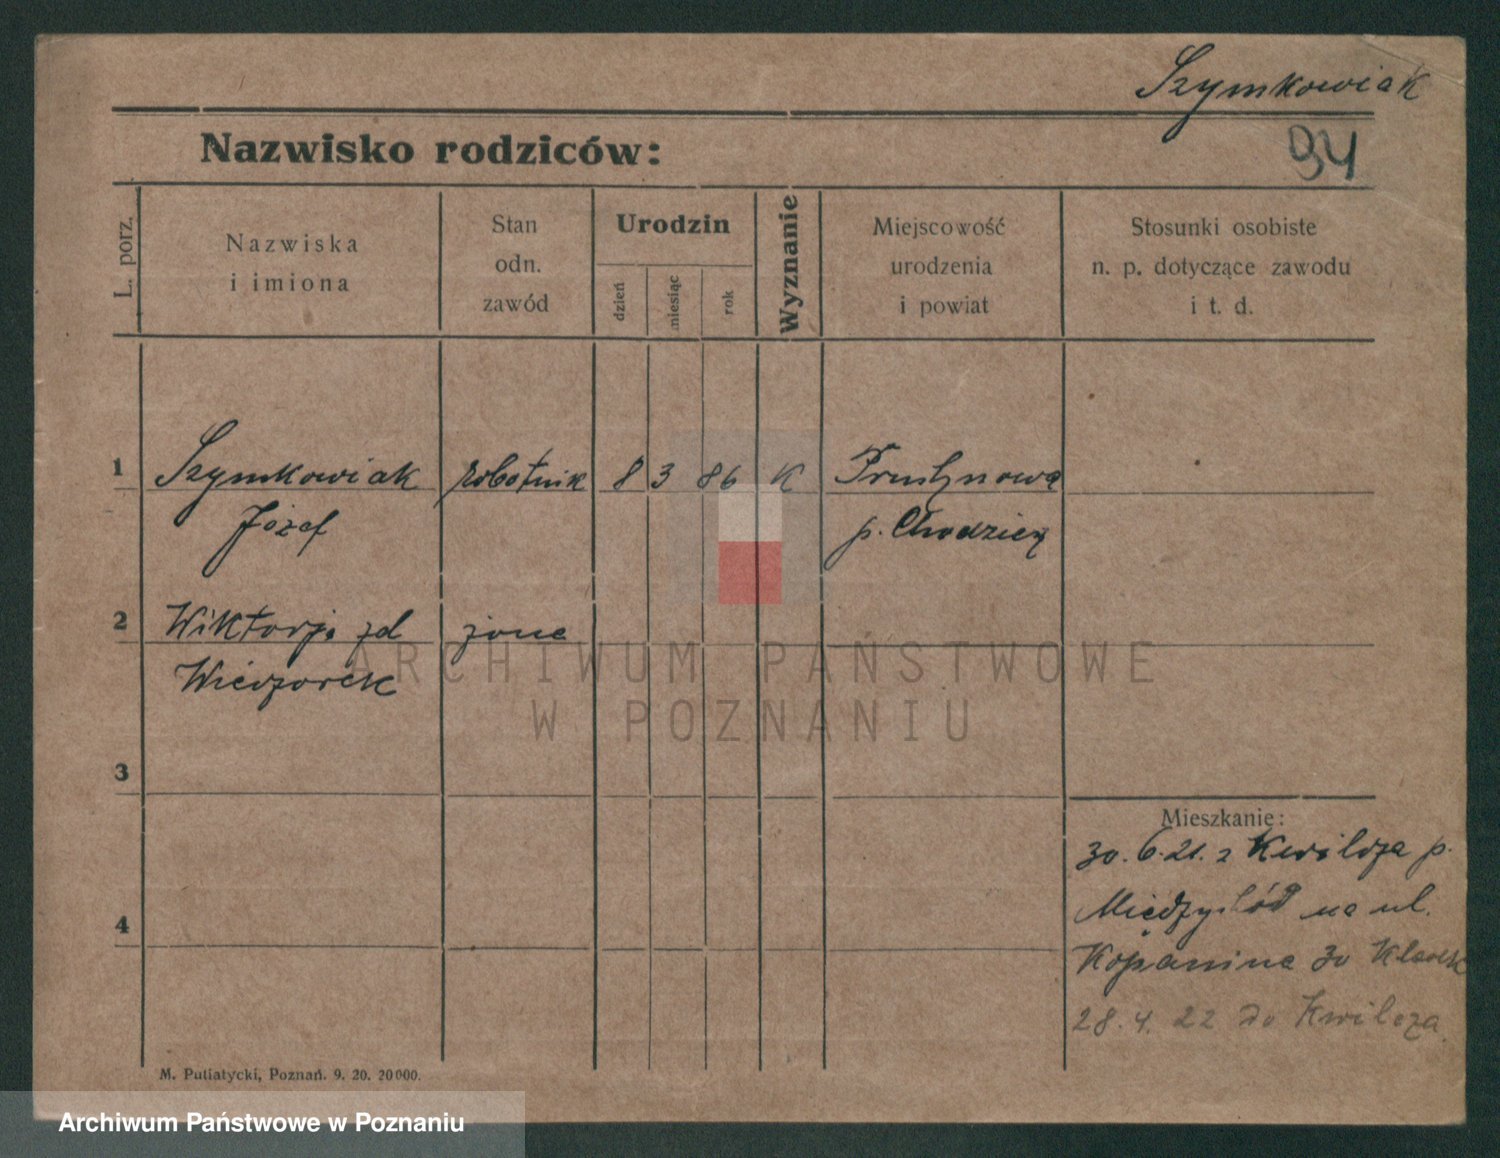 Szymkowiak
94
Nazwisko rodziców:
L. porz.
Nazwiska
i imiona
Stan
odn.
zawód
Urodzin
dzień
miesiąc
rok
Wyznanie
Miejscowość
urodzenia
i powiat
Stosunki osobiste
n. p. dotyczące zawodu
i t. d.
1 Szymkowiak robotnik 8 3 86 K
Józef p. Chodzież
2 Wiktorja zd żona
Wieczorek
ARCHIWUM PAŃSTWOWE
W POZNANIU
3
Mieszkanie:
30.6.21. z Kwilcza p.
Międzychód na ul.
4
Kopanina 30
28.4.22 do Kwilcza
M. Putiatycki, Poznań. 9. 20. 20000.
Archiwum Państwowe w Poznaniu